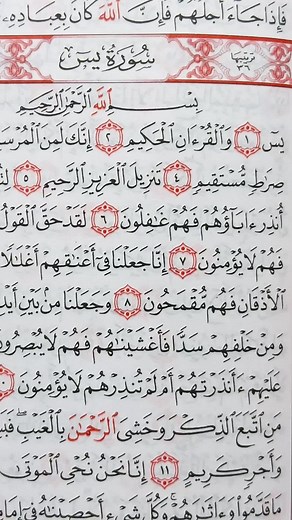 فَإِذَا جَآءَ أَجَلُهُمْ فَإِنَّ ٱللَّهَ كَانَ بِعِبَادِهِۦ
سُورَةُ يسٓ
بِسْمِ ٱللَّهِ ٱلرَّحْمَٰنِ ٱلرَّحِيمِ
يسٓ ١ وَٱلْقُرْءَانِ ٱلْحَكِيمِ ٢ إِنَّكَ لَمِنَ ٱلْمُرْسَ
صِرَٰطٍ مُّسْتَقِيمٍ ٤ تَنزِيلَ ٱلْعَزِيزِ ٱلرَّحِيمِ ٥ لِتُ
أُنذِرَ ءَابَآؤُهُمْ فَهُمْ غَٰفِلُونَ ٦ لَقَدْ حَقَّ ٱلْقَوْلُ
فَهُمْ لَا يُؤْمِنُونَ ٧ إِنَّا جَعَلْنَا فِىٓ أَعْنَٰقِهِمْ أَغْلَٰلًا
ٱلْأَذْقَانِ فَهُم مُّقْمَحُونَ ٨ وَجَعَلْنَا مِنۢ بَيْنِ أَيْدِ
وَمِنْ خَلْفِهِمْ سَدًّا فَأَغْشَيْنَٰهُمْ فَهُمْ لَا يُبْصِرُونَ
عَلَيْهِمْ ءَأَنذَرْتَهُمْ أَمْ لَمْ تُنذِرْهُمْ لَا يُؤْمِنُونَ
مَنِ ٱتَّبَعَ ٱلذِّكْرَ وَخَشِىَ ٱلرَّحْمَٰنَ بِٱلْغَيْبِ ۖ فَبَ
وَأَجْرٍ كَرِيمٍ ١١ إِنَّا نَحْنُ نُحْىِ ٱلْمَوْتَىٰ
مَا قَدَّمُوا۟ وَءَاثَٰرَهُمْ ۚ وَكُلَّ شَىْءٍ أَحْصَيْنَٰهُ فِىٓ إِمَامٍ